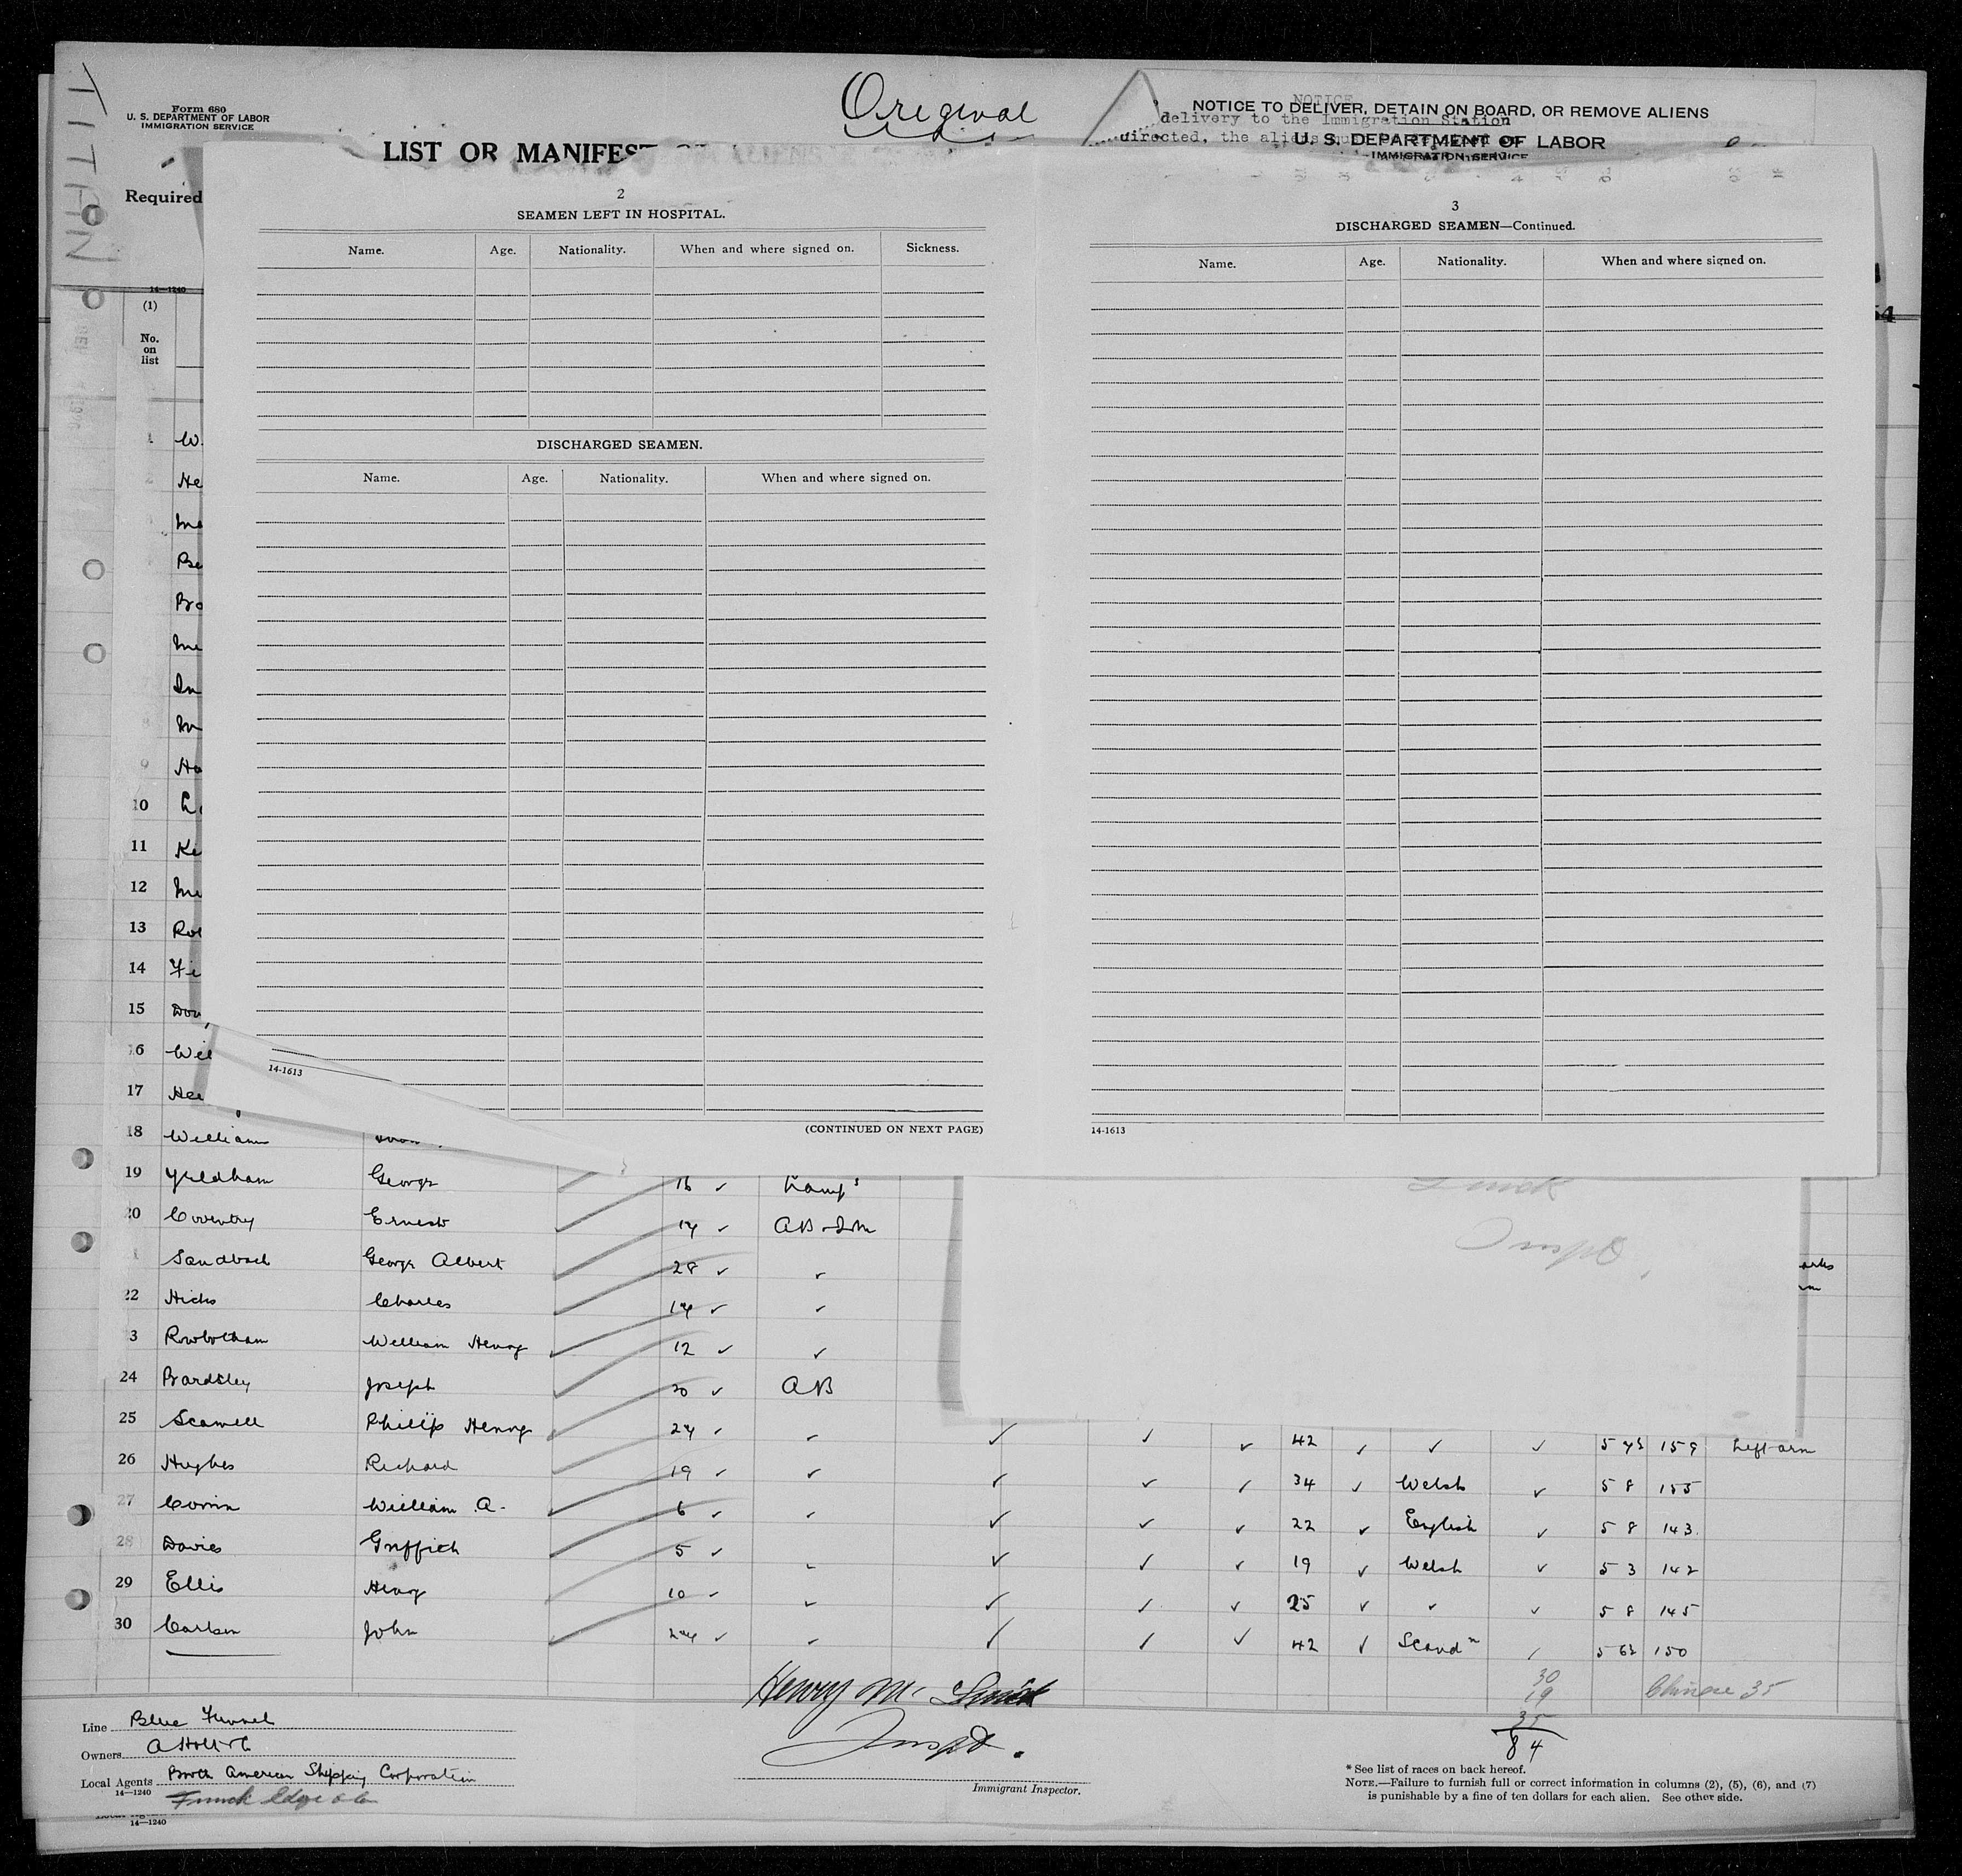 TITAN
Form 680
U. S. DEPARTMENT OF LABOR
IMMIGRATION SERVICE
Original
LIST OR MANIFEST
Required
NOTICE
NOTICE TO DELIVER, DETAIN ON BOARD, OR REMOVE ALIENS
delivery to the Immigration Station
directed, the aliens
U. S. DEPARTMENT OF LABOR
IMMIGRATION SERVICE
14—1240
(1)
No.
on
list
2
SEAMEN LEFT IN HOSPITAL.
Name. Age. Nationality. When and where signed on. Sickness.
DISCHARGED SEAMEN.
Name. Age. Nationality. When and where signed on.
(CONTINUED ON NEXT PAGE)
14-1613
3
DISCHARGED SEAMEN—Continued.
Name. Age. Nationality. When and where signed on.
14-1613
54
1 W.
2 He
Ma
Be
Bo
Me
8
9 Ha
10
11 Ke
12 Me
13 Rob
14 Fi
15 Dou
16 Wil
17 Hen
18 William
19 Yeldham George 16 ✓ Lamps
20 Coventry Ernest 14 ✓ AB
Sandbach George Albert 28 ✓ ✓
22 Hicks Charles 14 ✓ ✓
3 Rowbotham William Henry 12 ✓ ✓
24 Bardsley Joseph 20 ✓ AB
25 Scawell Philip Henry 24 ✓ ✓ ✓ ✓ ✓ 42 ✓ ✓ ✓ 5 7½ 159 Left arm
26 Hughes Richard 19 ✓ ✓ ✓ ✓ ✓ 34 ✓ Welsh ✓ 5 8 155
27 Corrin William A. 6 ✓ ✓ ✓ ✓ ✓ 22 ✓ English ✓ 5 8 143
28 Davies Griffith 5 ✓ ✓ ✓ ✓ ✓ 19 ✓ Welsh ✓ 5 3 142
29 Ellis Henry 10 ✓ ✓ ✓ ✓ ✓ 25 ✓ ✓ ✓ 5 8 145
30 Carlsen John 24 ✓ ✓ ✓ ✓ ✓ 42 ✓ Scandn ✓ 5 6½ 150
30
19
35
84
Chinese 35
Henry M.
Inspt.
Immigrant Inspector.
Line Blue Funnel
Owners A Holt & Co
Local Agents North American Shipping Corporation
14—1240
Funch Edye & Co
14—1240
* See list of races on back hereof.
NOTE.—Failure to furnish full or correct information in columns (2), (5), (6), and (7)
is punishable by a fine of ten dollars for each alien. See other side.